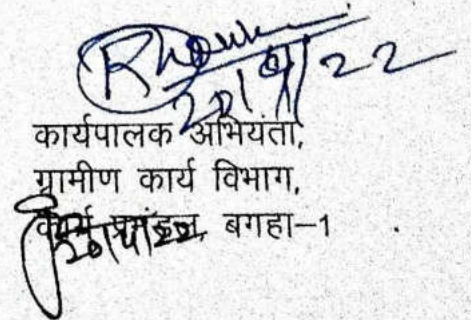 20/4/22
कार्यपालक अभियंता,
ग्रामीण कार्य विभाग,
कार्य प्रमंडल, बगहा-1
20/4/22